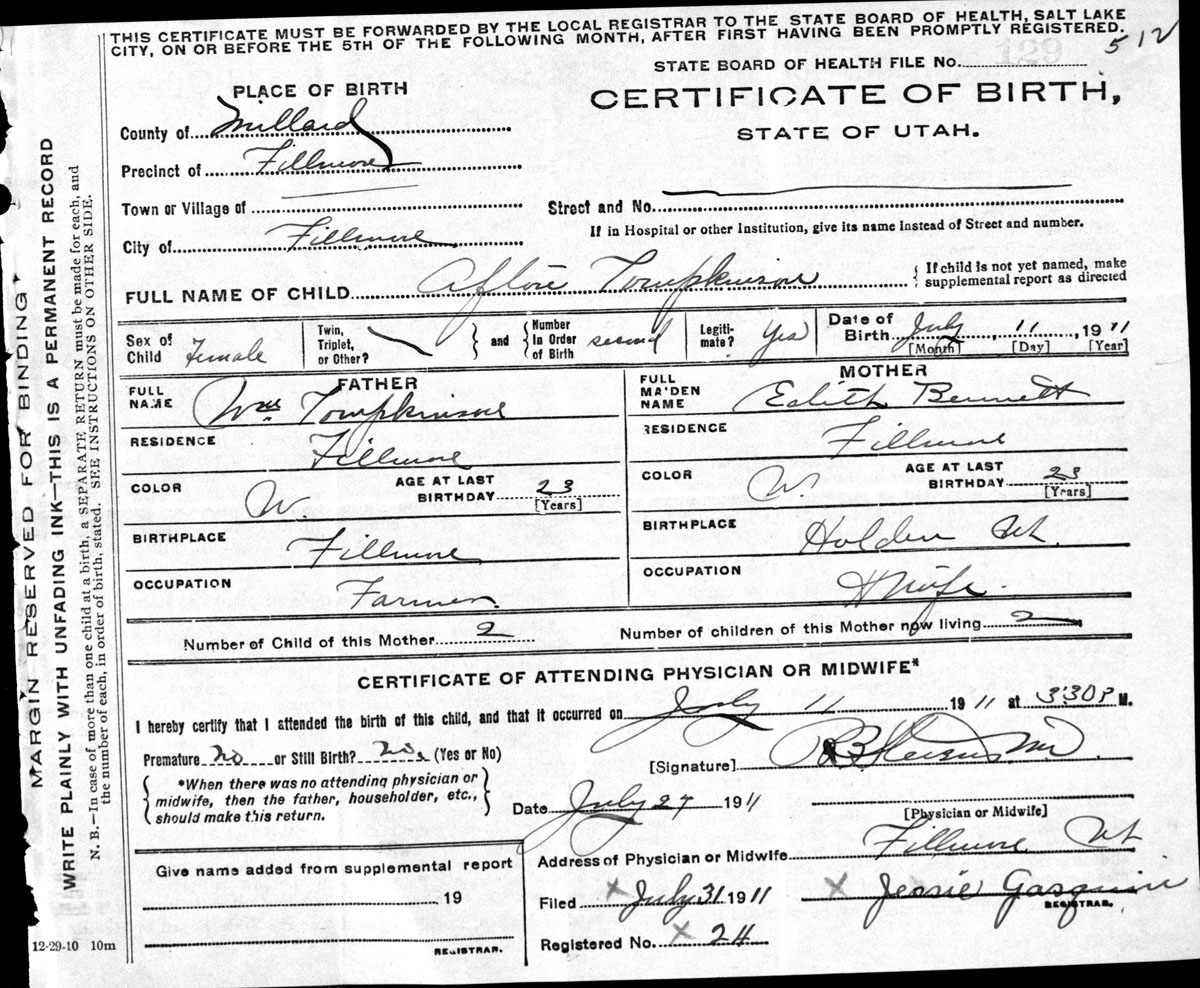 THIS CERTIFICATE MUST BE FORWARDED BY THE LOCAL REGISTRAR TO THE STATE BOARD OF HEALTH, SALT LAKE
CITY, ON OR BEFORE THE 5TH OF THE FOLLOWING MONTH, AFTER FIRST HAVING BEEN PROMPTLY REGISTERED.
512
129
STATE BOARD OF HEALTH FILE No.
CERTIFICATE OF BIRTH,
STATE OF UTAH.
PLACE OF BIRTH
County of Millard
Precinct of Fillmore
Town or Village of
Street and No.
City of Fillmore
If in Hospital or other Institution, give its name instead of Street and number.
FULL NAME OF CHILD Aflore Tompkinson
{ If child is not yet named, make
supplemental report as directed
Sex of Child Female
Twin, Triplet, or Other? } and { Number In Order of Birth second
Legiti-mate? Yes
Date of Birth July 11, 1911
[Month] [Day] [Year]
FATHER
FULL NAME Wm Tompkinson
RESIDENCE Fillmore
COLOR W. AGE AT LAST BIRTHDAY 23 [Years]
BIRTHPLACE Fillmore
OCCUPATION Farmer
MOTHER
FULL MAIDEN NAME Edith Bennett
RESIDENCE Fillmore
COLOR W AGE AT LAST BIRTHDAY 23 [Years]
BIRTHPLACE Holden Ut.
OCCUPATION HWife
Number of Child of this Mother 2 Number of children of this Mother now living 2
CERTIFICATE OF ATTENDING PHYSICIAN OR MIDWIFE*
I hereby certify that I attended the birth of this child, and that it occurred on July 11 1911 at 3:30P M.
Premature no or Still Birth? no. (Yes or No)
[Signature]
{ *When there was no attending physician or
midwife, then the father, householder, etc.,
should make this return. }
Date July 27 1911
[Physician or Midwife]
Address of Physician or Midwife Fillmore Ut
Give name added from supplemental report
19
REGISTRAR.
Filed x July 31 1911
x Jessie Gasquin
REGISTRAR.
Registered No. x 24
12-29-10 10m
MARGIN RESERVED FOR BINDING
WRITE PLAINLY WITH UNFADING INK—THIS IS A PERMANENT RECORD
N. B.—In case of more than one child at a birth, a SEPARATE RETURN must be made for each, and
the number of each, in order of birth, stated. SEE INSTRUCTIONS ON OTHER SIDE.